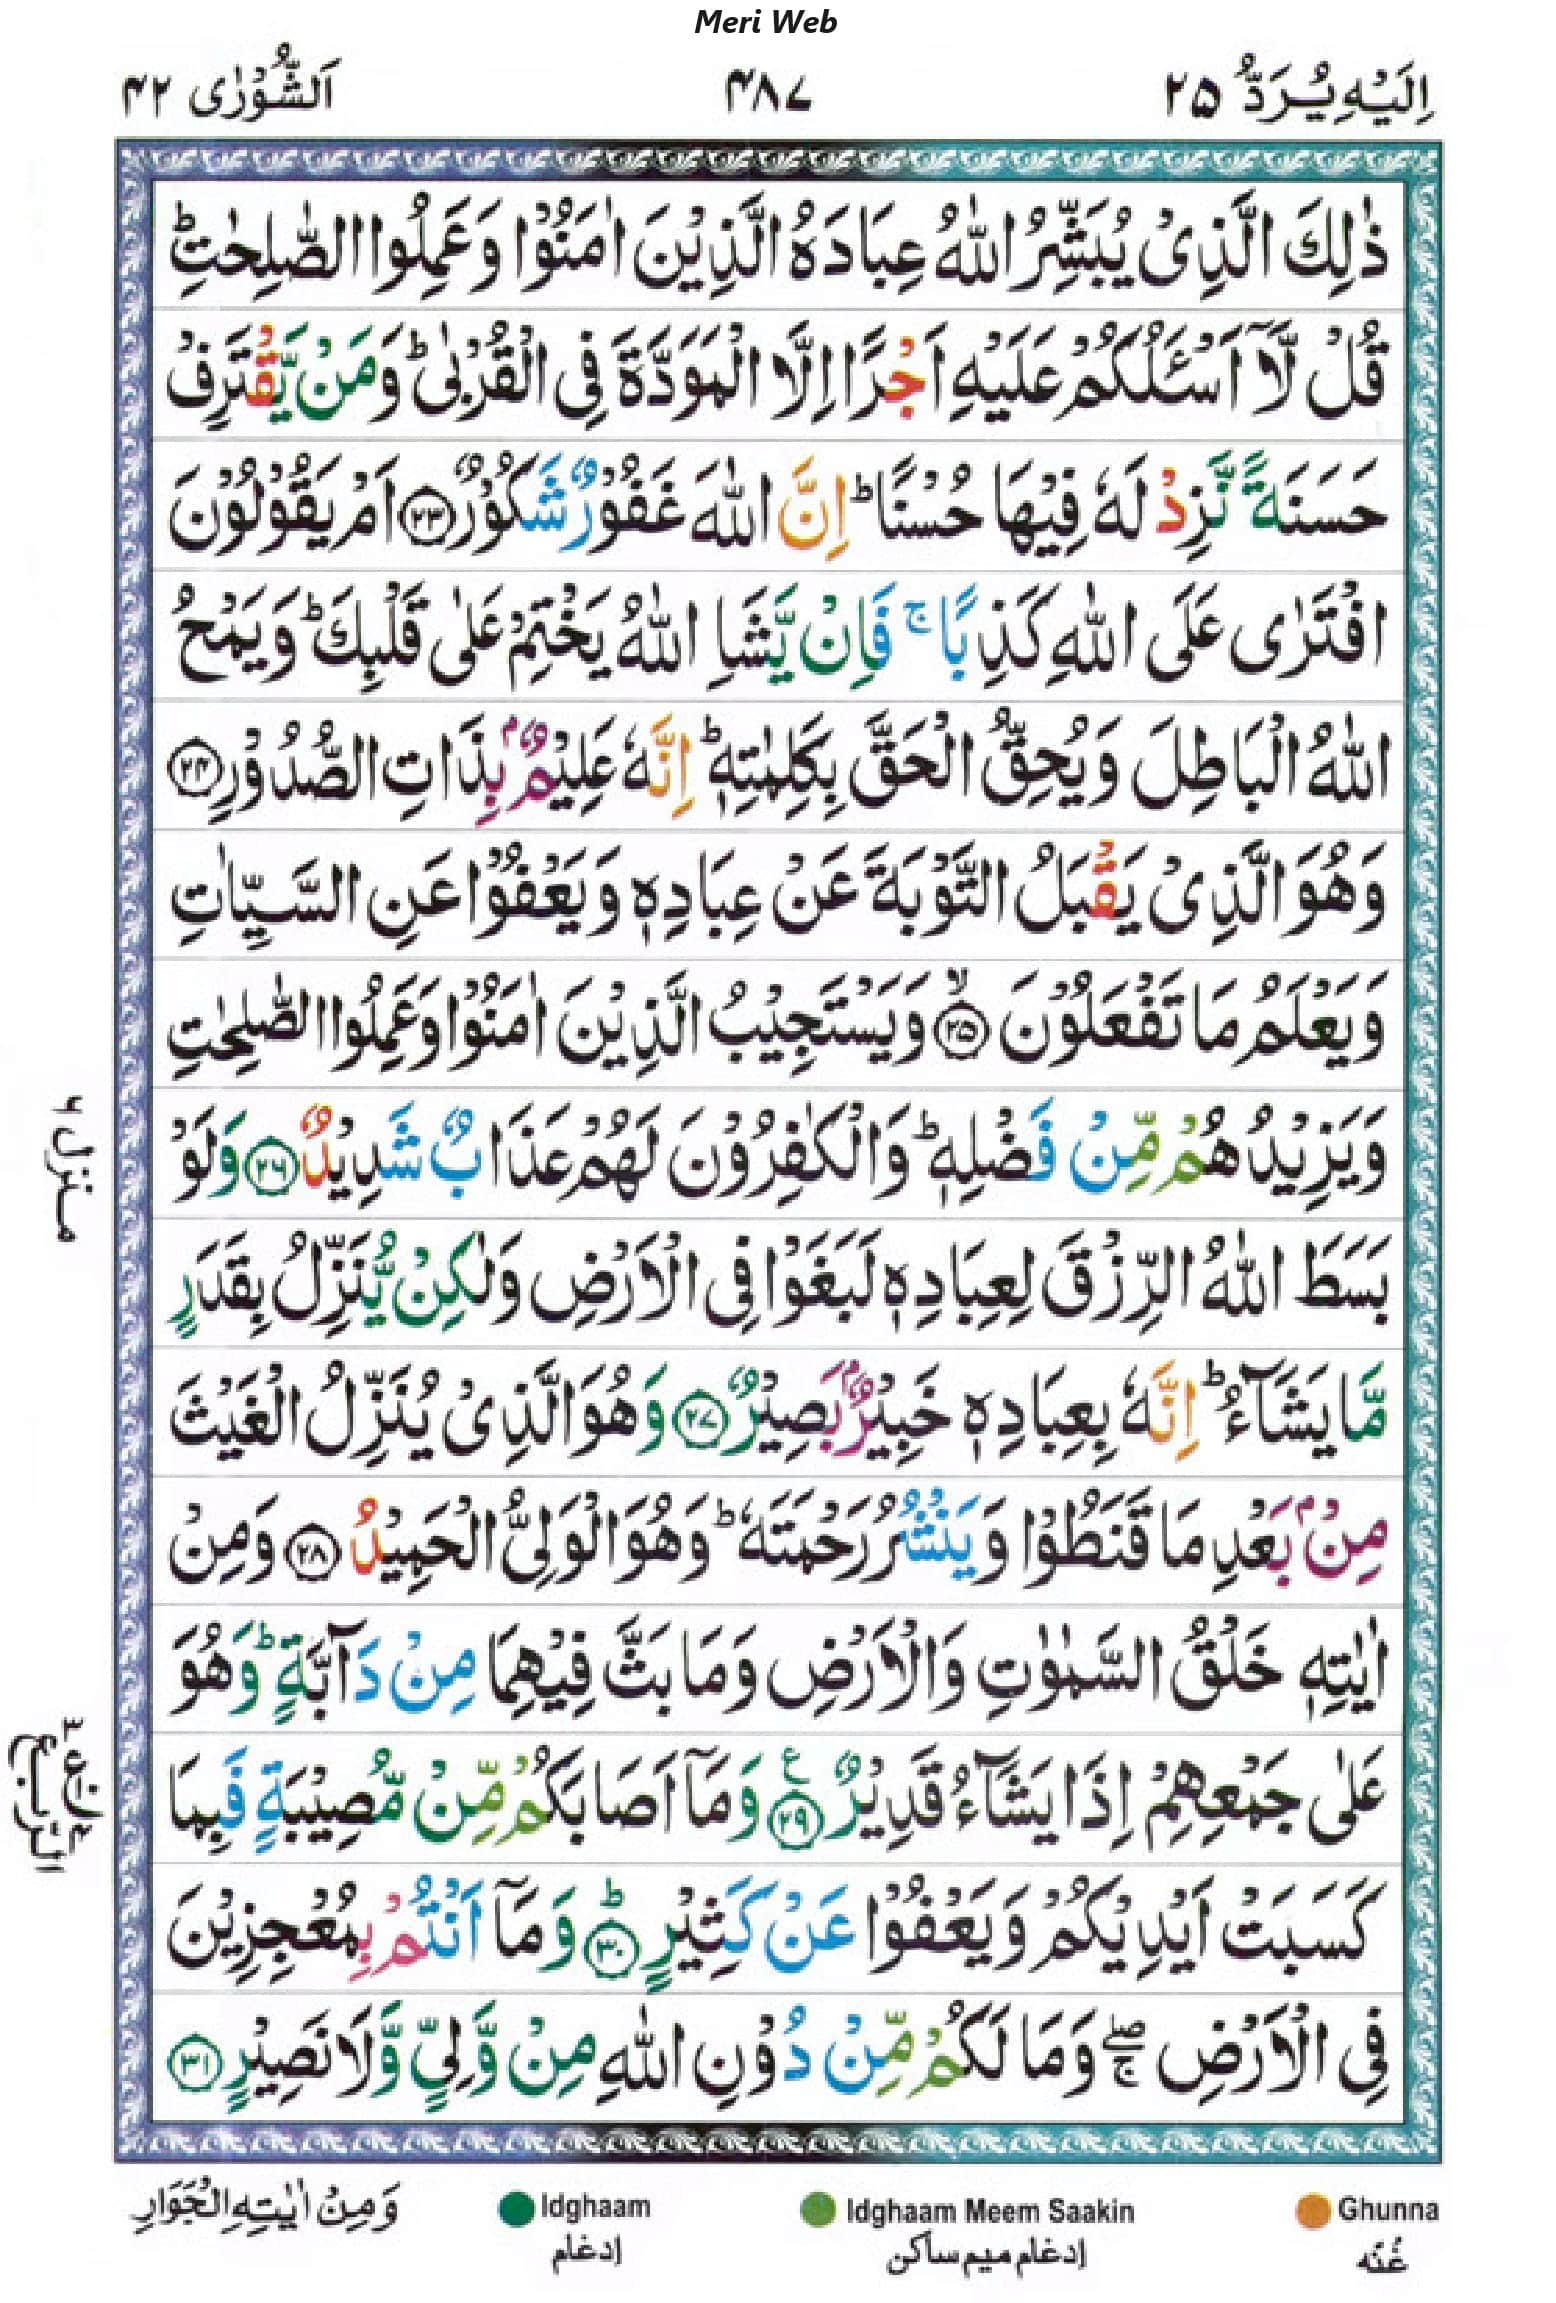 Meri Web
اِلَيْهِ يُرَدُّ ۲۵
۴۸۷
اَلشُّوْرٰى ۴۲
ذٰلِكَ الَّذِىْ يُبَشِّرُ اللّٰهُ عِبَادَهُ الَّذِيْنَ اٰمَنُوْا وَعَمِلُوا الصّٰلِحٰتِ ؕ
قُلْ لَّاۤ اَسْـَٔلُكُمْ عَلَيْهِ اَجْرًا اِلَّا الْمَوَدَّةَ فِى الْقُرْبٰى ؕ وَمَنْ يَّقْتَرِفْ
حَسَنَةً نَّزِدْ لَهٗ فِيْهَا حُسْنًا ؕ اِنَّ اللّٰهَ غَفُوْرٌ شَكُوْرٌ ۝۲۳ اَمْ يَقُوْلُوْنَ
افْتَرٰى عَلَى اللّٰهِ كَذِبًا ۚ فَاِنْ يَّشَاِ اللّٰهُ يَخْتِمْ عَلٰى قَلْبِكَ ؕ وَيَمْحُ
اللّٰهُ الْبَاطِلَ وَيُحِقُّ الْحَقَّ بِكَلِمٰتِهٖ ؕ اِنَّهٗ عَلِيْمٌۢ بِذَاتِ الصُّدُوْرِ ۝۲۴
وَهُوَ الَّذِىْ يَقْبَلُ التَّوْبَةَ عَنْ عِبَادِهٖ وَيَعْفُوْا عَنِ السَّيِّاٰتِ
وَيَعْلَمُ مَا تَفْعَلُوْنَ ۙ۝۲۵ وَيَسْتَجِيْبُ الَّذِيْنَ اٰمَنُوْا وَعَمِلُوا الصّٰلِحٰتِ
وَيَزِيْدُهُمْ مِّنْ فَضْلِهٖ ؕ وَالْكٰفِرُوْنَ لَهُمْ عَذَابٌ شَدِيْدٌ ۝۲۶ وَلَوْ
بَسَطَ اللّٰهُ الرِّزْقَ لِعِبَادِهٖ لَبَغَوْا فِى الْاَرْضِ وَلٰكِنْ يُّنَزِّلُ بِقَدَرٍ
مَّا يَشَآءُ ؕ اِنَّهٗ بِعِبَادِهٖ خَبِيْرٌۢ بَصِيْرٌ ۝۲۷ وَهُوَ الَّذِىْ يُنَزِّلُ الْغَيْثَ
مِنْۢ بَعْدِ مَا قَنَطُوْا وَيَنْشُرُ رَحْمَتَهٗ ؕ وَهُوَ الْوَلِىُّ الْحَمِيْدُ ۝۲۸ وَمِنْ
اٰيٰتِهٖ خَلْقُ السَّمٰوٰتِ وَالْاَرْضِ وَمَا بَثَّ فِيْهِمَا مِنْ دَآبَّةٍ ؕ وَهُوَ
عَلٰى جَمْعِهِمْ اِذَا يَشَآءُ قَدِيْرٌ ۝۲۹ ع وَمَاۤ اَصَابَكُمْ مِّنْ مُّصِيْبَةٍ فَبِمَا
كَسَبَتْ اَيْدِيْكُمْ وَيَعْفُوْا عَنْ كَثِيْرٍ ؕ۝۳۰ وَمَاۤ اَنْتُمْ بِمُعْجِزِيْنَ
فِى الْاَرْضِ ۚۖ وَمَا لَكُمْ مِّنْ دُوْنِ اللّٰهِ مِنْ وَّلِىٍّ وَّلَا نَصِيْرٍ ۝۳۱
منزل ۶
الربع
Ghunna
غُنّه
Idghaam Meem Saakin
إدغام ميم ساكن
Idghaam
إدغام
وَمِنْ اٰيٰتِهِ الْجَوَارِ